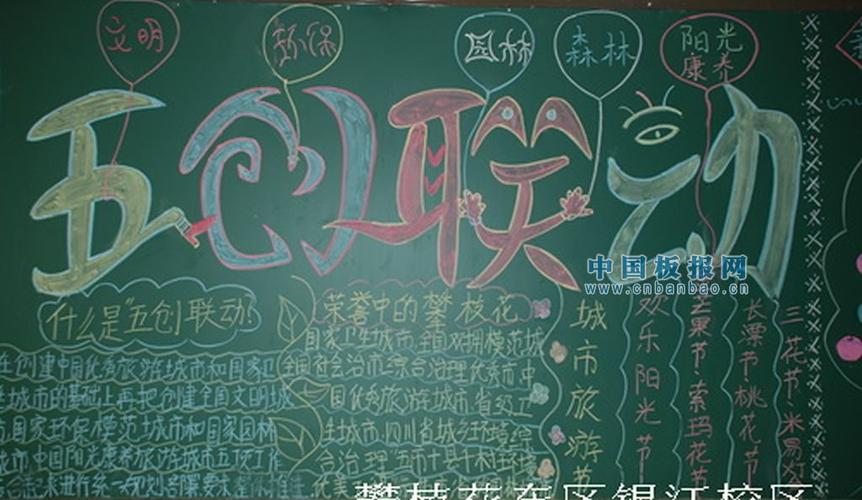 文明
环保
园林
森林
阳光
康养
五创联动
中国板报网
www.cnbanbao.cn
什么是"五创联动
生创建中国优秀旅游城市和国家卫
城市的基础上再把创建全国文明城
国家环保模范城市和国家园林
城市中国阳光康养旅游城市五项工作
起来进行统一规划
荣誉中的攀枝花
国家卫生城市、全国双拥模范城
全国社会治安综合治理优秀市中
国优秀旅游城市、省级卫
生城市、四川省城乡环境综
合治理
城市旅游节
欢乐阳光节
芒果节·索玛花节
长漂节·桃花节
三花节·米易
攀枝花东区银江校区